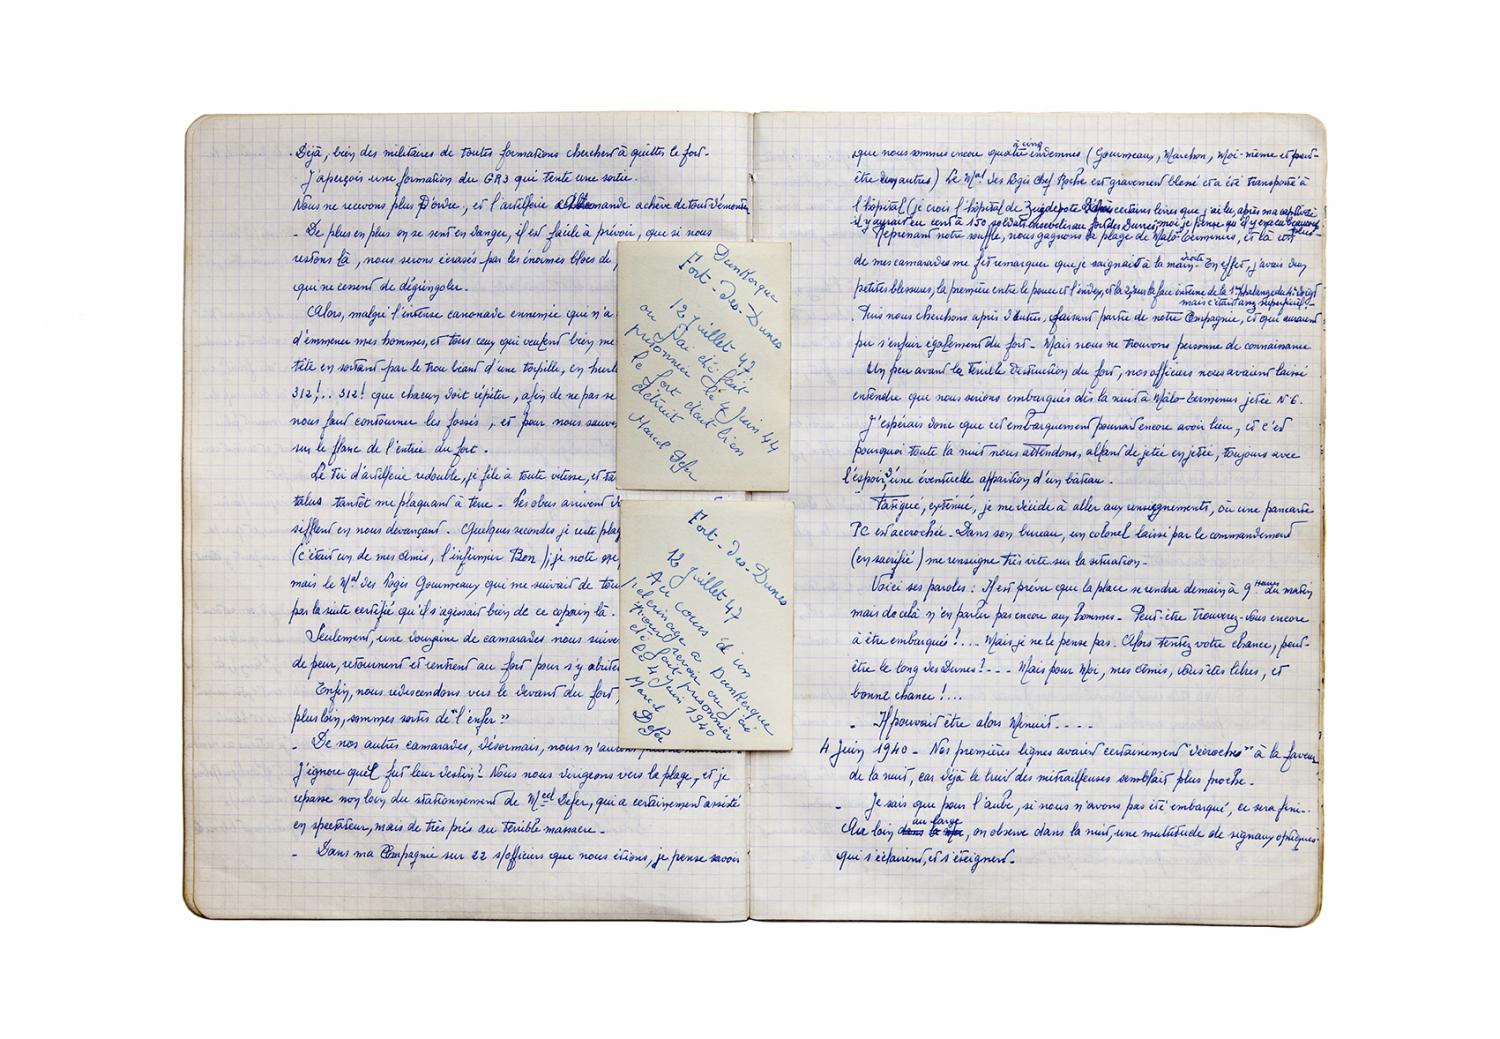 Déjà, bien des militaires de toutes formations cherchent à quitter le fort.
J'aperçois une formation du GR3 qui tente une sortie.
Nous ne recevons plus d'ordre, et l'artillerie allemande achève de tout démonter
- De plus en plus on se sent en danger, il est facile à prévoir, que si nous
restons là, nous serons écrasés par les énormes blocs de
qui ne cessent de dégringoler.
Alors, malgré l'intense canonade ennemie qui n'a
d'emmener mes hommes, et tous ceux qui veulent bien me
tête en sortant par le trou béant d'une torpille, en hurl
312!.. 312! que chacun doit répéter, afin de ne pas se
nous faut contourner les fossés, et pour nous sauve
sur le flanc de l'entrée du fort.
Le tir d'artillerie redouble, je file à toute vitesse, et ta
talus tantôt me plaquant à terre - Les obus arrivent d
sifflent en nous devançant. Quelques secondes je reste plaq
(c'était un de mes amis, l'infirmier Bon); je note
mais le Mal des Logis Gourmeaux qui me suivait de tou
par la suite certifié qu'il s'agissait bien de ce copain là.
Seulement, une douzaine de camarades nous suive
de peur, retournent et rentrent au fort pour s'y abriter
Enfin, nous redescendons vers le devant du fort,
plus loin, sommes sortis de "l'enfer"
- De nos autres camarades, désormais, nous n'au
J'ignore quel fut leur destin? Nous nous dirigeons vers la plage, et je
repasse non loin du stationnement de Mcel Defer, qui a certainement assisté
en spectateur, mais de très près au terrible massacre.
- Dans ma Compagnie sur 22 s/officiers que nous étions, je pense savoir
Dunkerque
Fort-des-Dunes
12 Juillet 47
ou j'ai été fait
prisonnier le 4 Juin 44
le fort était bien
détruit
Marcel Defer
Fort-des-Dunes
12 Juillet 47
Au cours d'un
pelerinage a Dunkerque
pour revoir ou j'ai
été fait prisonnier
le 4 Juin 1940
Marcel
Defer
que nous sommes encore quatre à cinq indemnes (Gourmeaux, Marchon, Moi-même et peut-
être deux autres) Le Mal des Logis Chef Roche est gravement blessé et a été transporté à
l'hôpital (je crois l'hôpital de Zuydcoote certains livres que j'ai lu, après ma captivité
il y aurait eu cent à 150 soldats ensevelis au fort des Dunes, moi je pense qu'il y en a beaucoup plus-
Reprenant notre souffle, nous gagnons la plage de Malo-Terminus, et là
de mes camarades me fit remarquer que je saignait à la main droite - En effet, j'avais deux
petites blessures, la première entre le pouce et l'index, et la 2è sur la face interne de la 1ère phalange du 4è doigt
mais c'était assez superficiel -
Puis nous cherchons après d'autres, faisant partie de notre Compagnie, et qui auraient
pu s'enfuir également du fort - Mais nous ne trouvons personne de connaissance
Un peu avant la terrible destruction du fort, nos officiers nous avaient laissé
entendre que nous serions embarqués dès la nuit à Malo-Terminus jetée N°6.
J'espérais donc que cet embarquement pourrait encore avoir lieu, et c'est
pourquoi toute la nuit nous attendons, allant de jetée en jetée, toujours avec
l'espoir d'une éventuelle apparition d'un bateau.
Fatigué, exténué, je me décide à aller aux renseignements, où une pancarte
PC est accrochée. Dans son bureau, un colonel laissé par le commandement
(en sacrifié) me renseigne très vite sur la situation.
Voici ses paroles: Il est prévu que la place se rendra demain à 9 heures du matin
mais de celà n'en parler pas encore aux hommes. Peut-être trouverez-vous encore
à être embarqué!... Mais je ne le pense pas. Alors tentez votre chance, peut-
être le long des Dunes?... Mais pour Moi, mes amis, vous êtes libres, et
bonne chance!...
- Il pouvait être alors Minuit....
4 Juin 1940 - Nos premières lignes avaient certainement "décrochés" à la faveur
de la nuit, car déjà le bruit des mitrailleuses semblait plus proche.
- Je sais que pour l'aube, si nous n'avons pas été embarqué, ce sera fini-
Au loin dans la mer au large, on observe dans la nuit, une multitude de signaux optiques
qui s'éclairent, et s'éteignent.